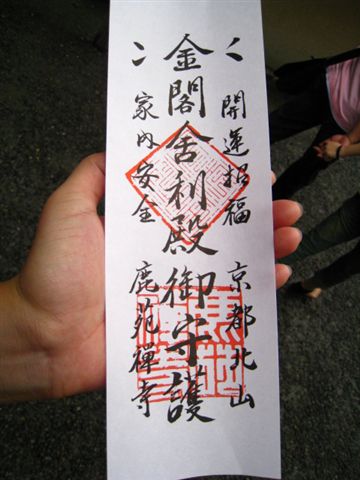 開運招福 京都北山
金閣舍利殿御守護
家内安全 鹿苑禅寺